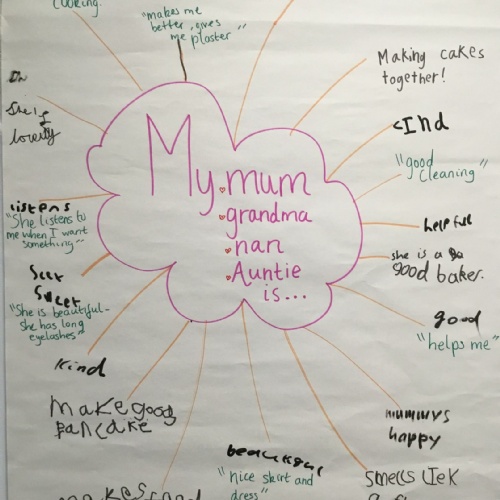 cooking.
"makes me
better, gives
me plaster"
Making cakes
together!
kInd
"good
cleaning"
helpfull
she is a
good baker.
good
"helps me"
mummys
happy
smells
"nice skirt and
dress"
makes good
Make good
Pancake
kind
"She is beautiful -
she has long
eyelashes"
Listens
"She listens to
me when I want
something"
She is
lovely
My mum
grandma
nan
Auntie
is...